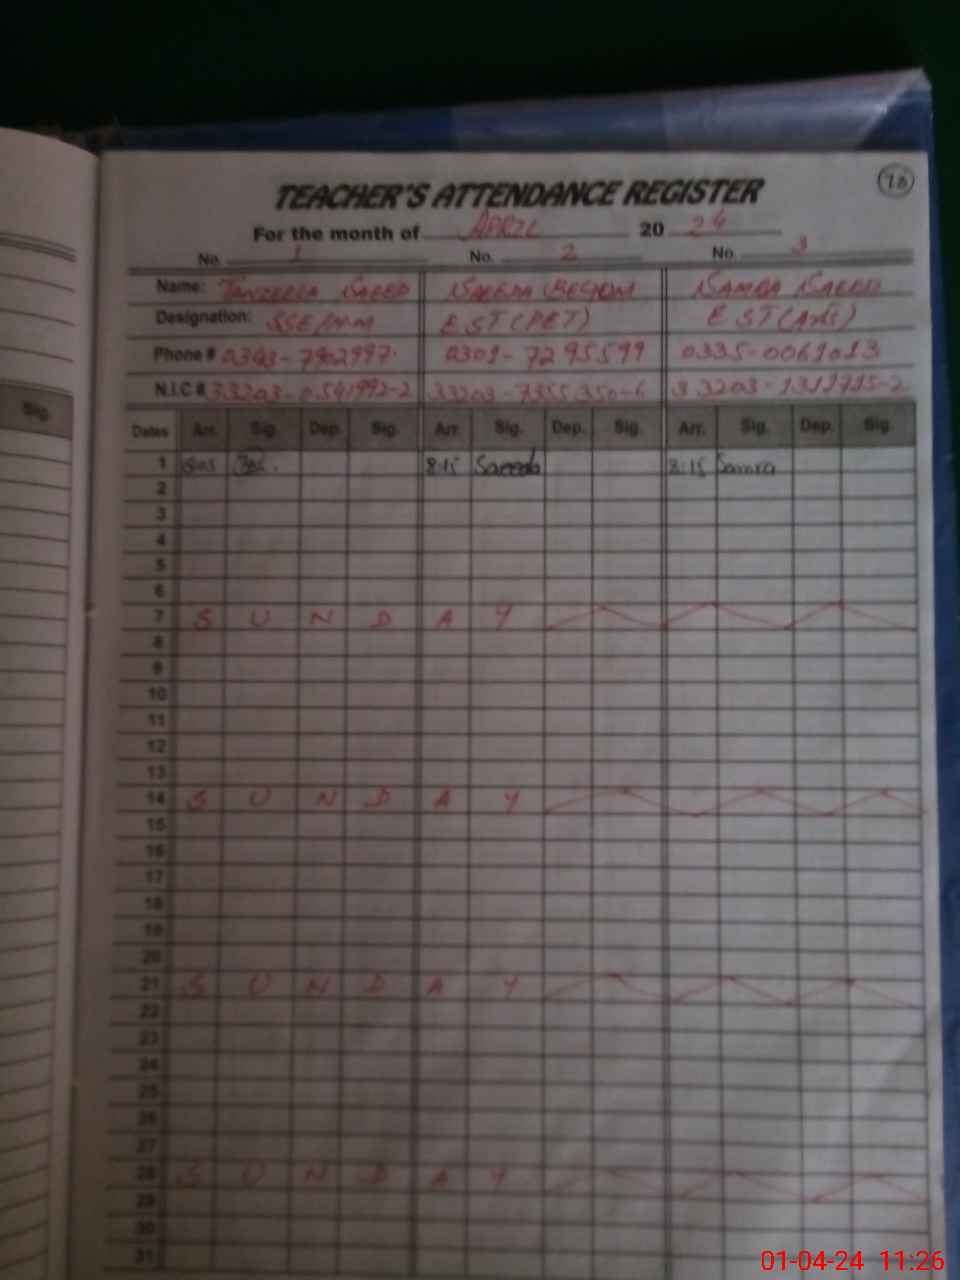 76
TEACHER'S ATTENDANCE REGISTER
For the month of APRIL 2024
No. 1 No. 2 No. 3
Name: TANZEELA SAEED SAEEDA BEGUM SAMRA SAEED
Designation: SSE/MM EST (PET) EST (Arts)
Phone # 0343-7902997 0301-7295599 0335-0061013
N.I.C # 33203-0541992-2 33203-7355350-6 33203-1312715-2
Sig.
Dates Arr. Sig. Dep. Sig. Arr. Sig. Dep. Sig. Arr. Sig. Dep. Sig.
1 8:15 Saeeda 8:15 Samra
2
3
4
5
6
7 S U N D A Y
8
9
10
11
12
13
14 S U N D A Y
15
16
17
18
19
20
21 S U N D A Y
22
23
24
25
26
27
28 S U N D A Y
29
30
31
01-04-24 11:26